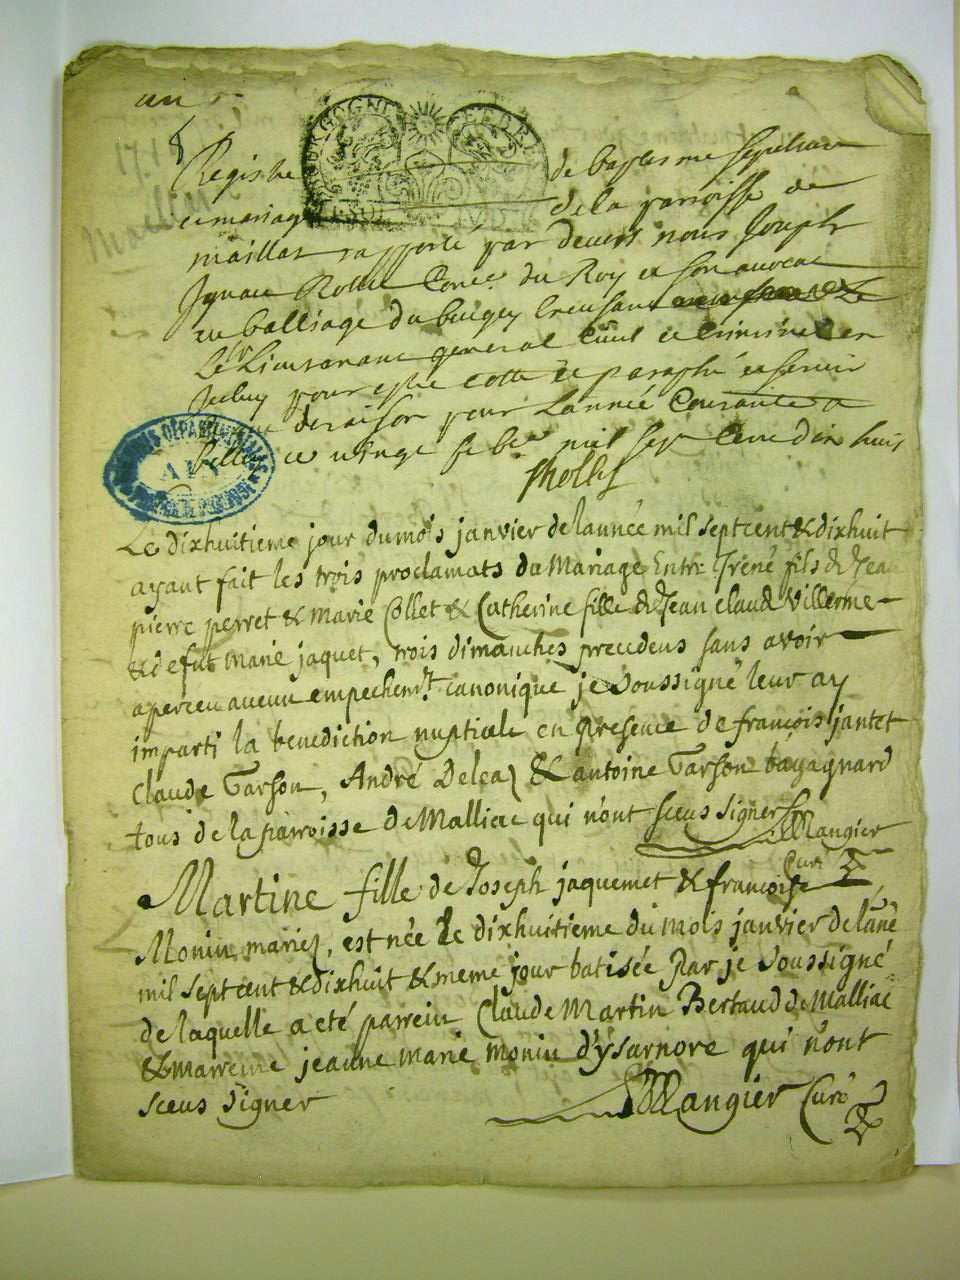 un
171
BOURGOGNE ET BRES
Registre de baptesme sepulture
et mariage de la parroisse de
maillat rapporté par devers nous Joseph
Ignace Rollet Conc.r du Roy et son avocat
au balliage du bugey
Lieutenant general Civil et Criminel en
Iceluy pour estre cotté et paraphé et servir
de raison pour Lannée Courante a
belley ce vingt mil sept cent dix huit
Rollet
ARCHIVES DÉPARTEMENTALES
AIN
Le dixhuitieme jour du mois janvier de lannée mil sept cent & dixhuit
ayant fait les trois proclamats du Mariage Entre Irené fils de Jean
pierre perret & Marie Collet & Catherine fille de Jean claude Villerme
& de fut Marie jaquet, trois dimanches precedens sans avoir
aperceu aucun empechemt canonique je soussigné leur ay
imparti la benediction nuptiale en presence de francois jantet
Claude Tarson, André Deleaz & antoine Tarson
tous de la parroisse de Malliac qui n'ont sceus signer Mangier
Curé
Martine fille de Joseph jaquemet & francoise
Monin mariez, est née le dixhuitieme du mois janvier de lané
mil sept cent & dixhuit & meme jour batisée par je soussigné
de laquelle a eté parrein Claude Martin Bertaud de Malliac
& marreine jeanne marie monin d'ysarnore qui n'ont
sceus signer Mangier Curé